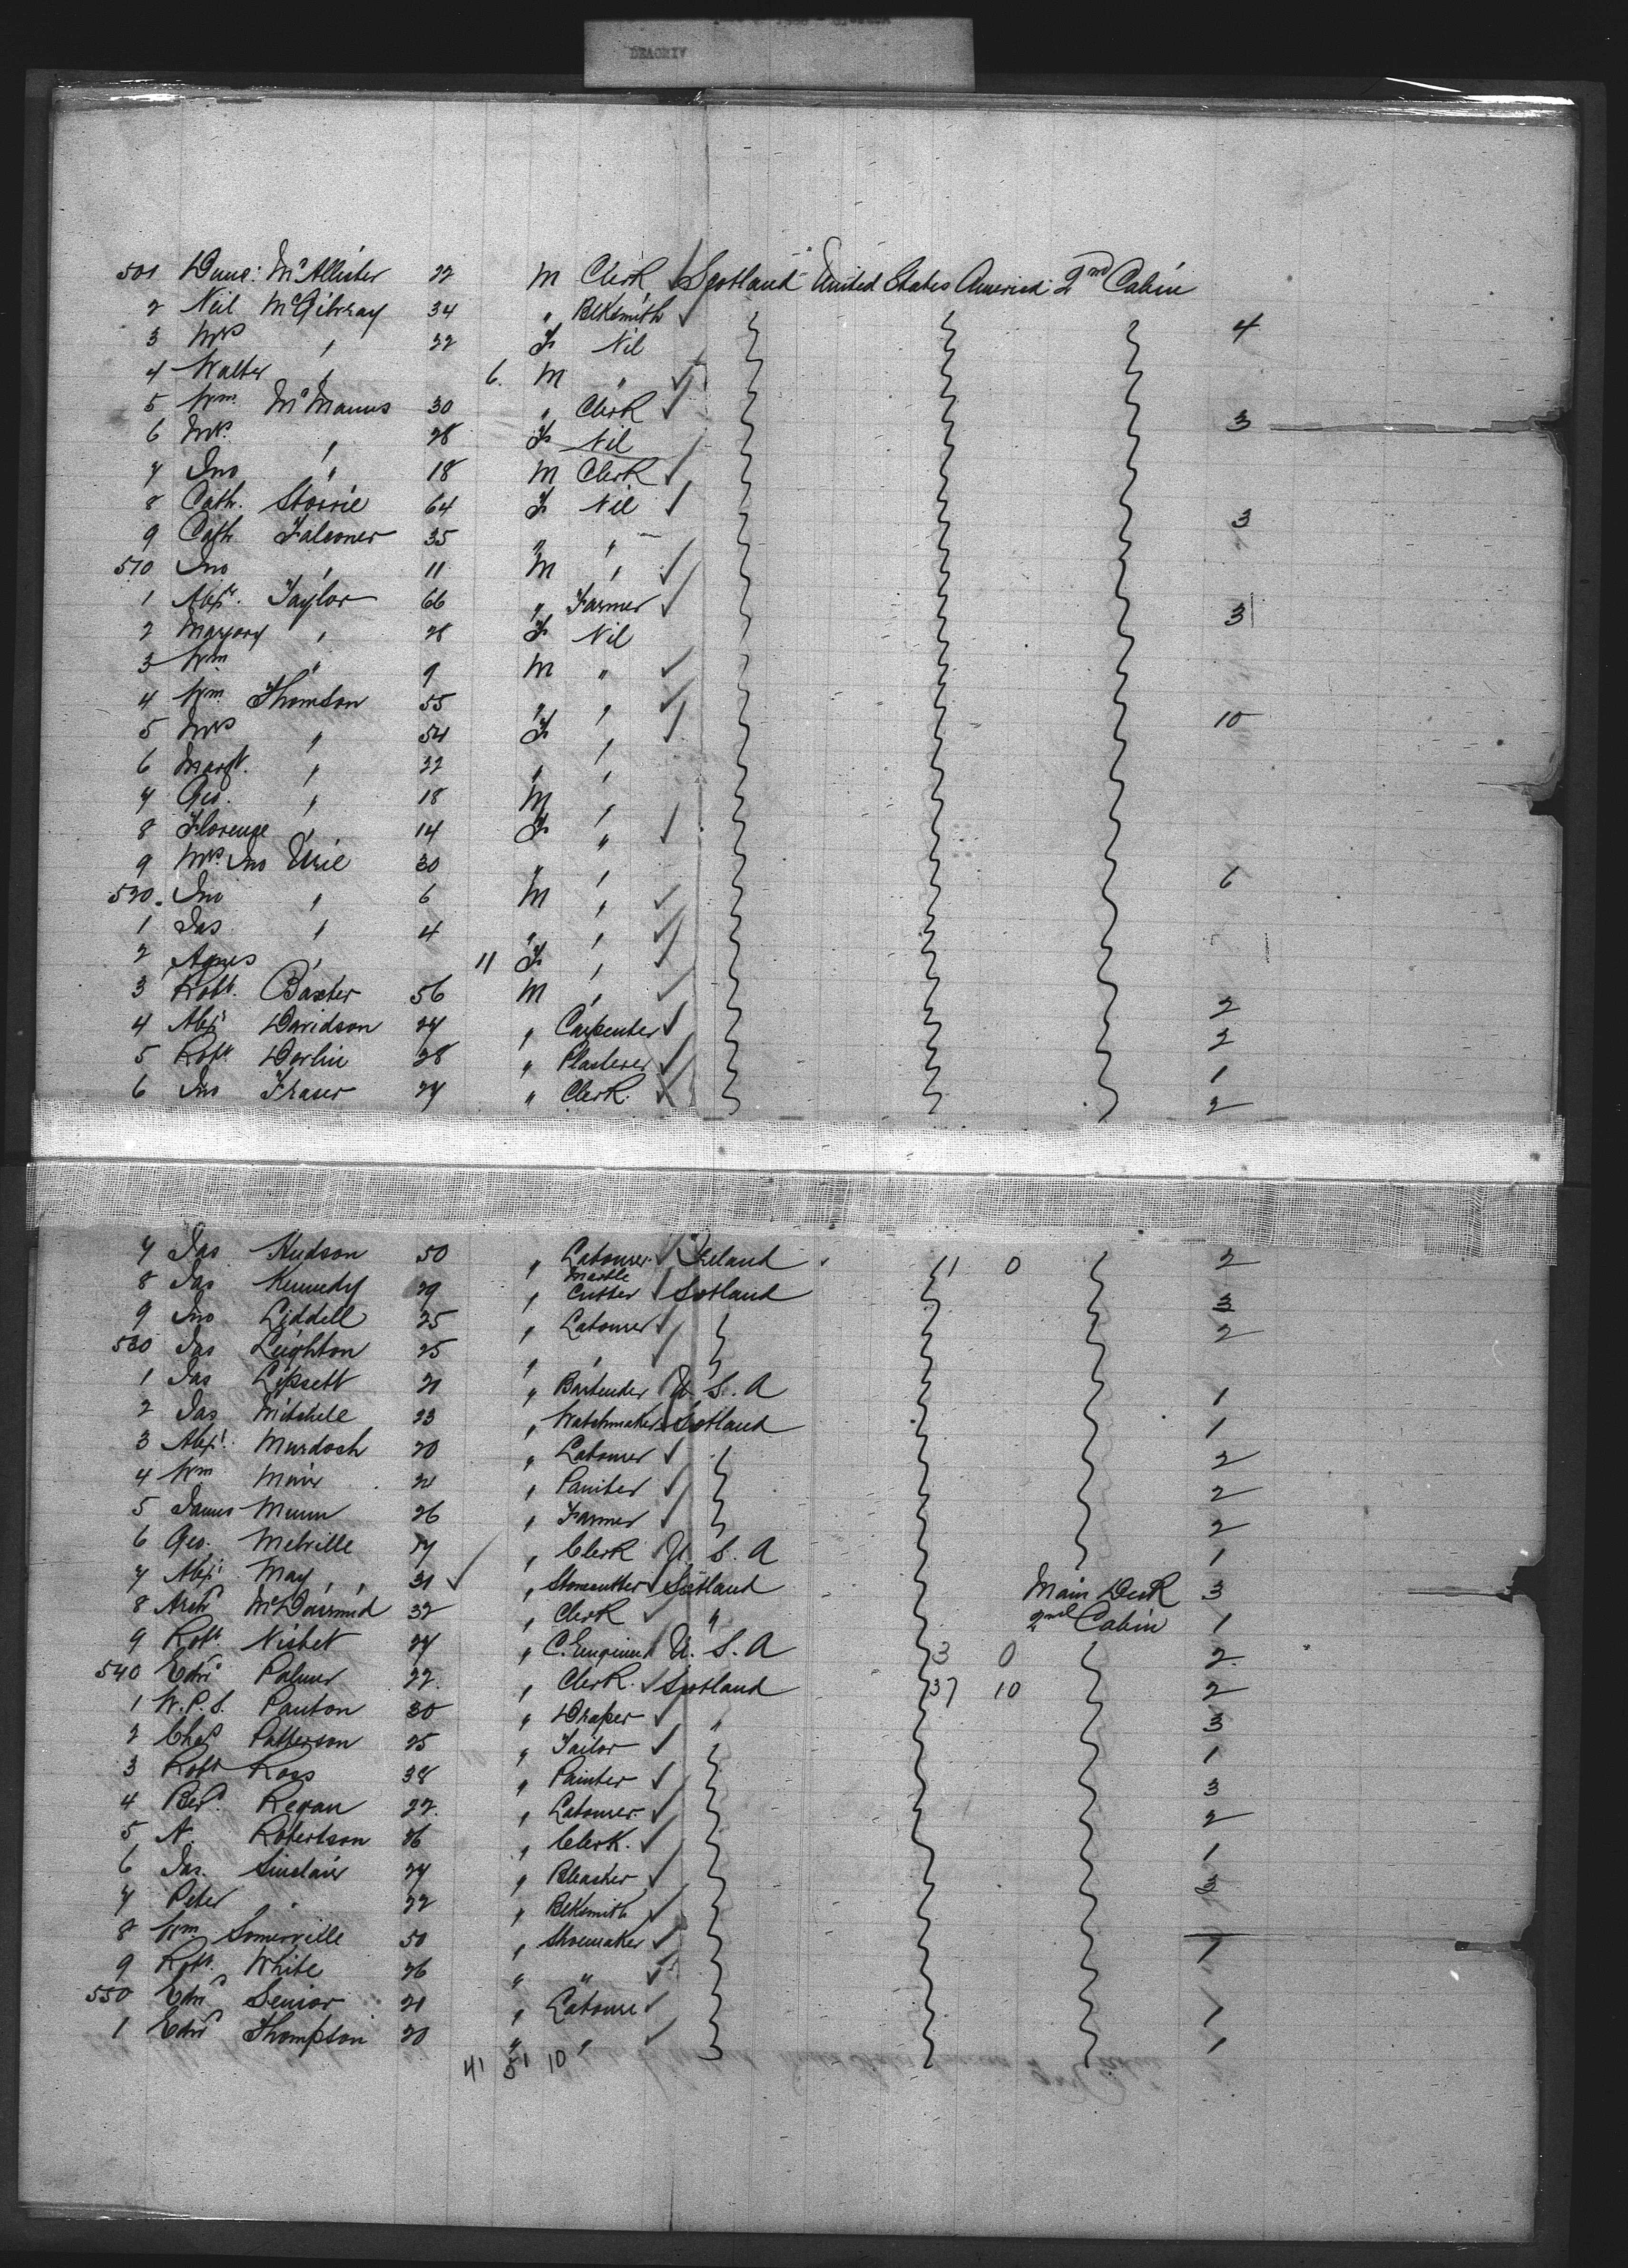 DEVONIA
501 Dunc: McAllister 22 M Clerk Scotland United States America 2nd Cabin
2 Neil McGilvray 34 " Blksmith 4
3 Mrs " 22 F Nil
4 Walter " 6. M "
5 Wm. McManus 30 " Clerk 3
6 Mrs. " 28 F Nil
7 Jno " 18 M Clerk
8 Cath. Storrie 64 F Nil
9 Cath Falconer 35 " " 3
510 Jno " 11 M "
1 Alexr. Taylor 66 " Farmer 3
2 Marjory " 28 F Nil
3 Wm " 9 M "
4 Wm Thomson 55 " "
5 Mrs " 54 F " 10
6 Margt. " 22 " "
7 Geo. " 18 M "
8 Florence " 14 F "
9 Mrs. Jno Urie 30 " "
520. Jno " 6 M " 6
1 Jas " 4 " "
2 Agnes " 11 F "
3 Robt. Baxter 56 M " 2
4 Alexr Davidson 27 " Carpenter 2
5 Robt. Dorlin 28 " Plasterer 1
6 Jno Fraser 27 " Clerk. 2
7 Jas Hudson 50 " Labourer Ireland 11 0 2
8 Jas Kennedy 29 " Marble Cutter Scotland 3
9 Jno Liddell 25 " Labourer 2
530 Jas Leighton 25 " "
1 Jas Lipsett 21 " Bartender U. S. A 1
2 Jas Mitchell 23 " Watchmaker Scotland 1
3 Alexr. Murdoch 20 " Labourer 2
4 Wm Muir 21 " Painter 2
5 James Munn 26 " Farmer 2
6 Geo. Melville 27 " Clerk U. S. A 1
7 Alexr May 31 " Stonecutter Scotland Main Deck 3
8 Archd McDiarmid 32 " Clerk " 2nd Cabin 1
9 Robt. Nisbet 27 " C. Engineer U. S. A 3 0 2.
540 Edwd Palmer 22. " Clerk. Scotland 37 10 2
1 W. P. S. Panton 30 " Draper " 3
2 Chas Patterson 25 " Tailor 1
3 Robt Ross 38 " Painter 3
4 Berd. Regan 22. " Labourer. 2
5 N. Robertson 26 " Clerk. 1
6 Jas. Sinclair 27 " Bleacher 3
7 Peter " 22 " Blksmith
8 Wm. Somerville 50 " Shoemaker 1
9 Robt. White 26 " "
550 Edwd Senior 21 " Labourer 1
1 Edwd Thompson 20 " " 1
41 51 10